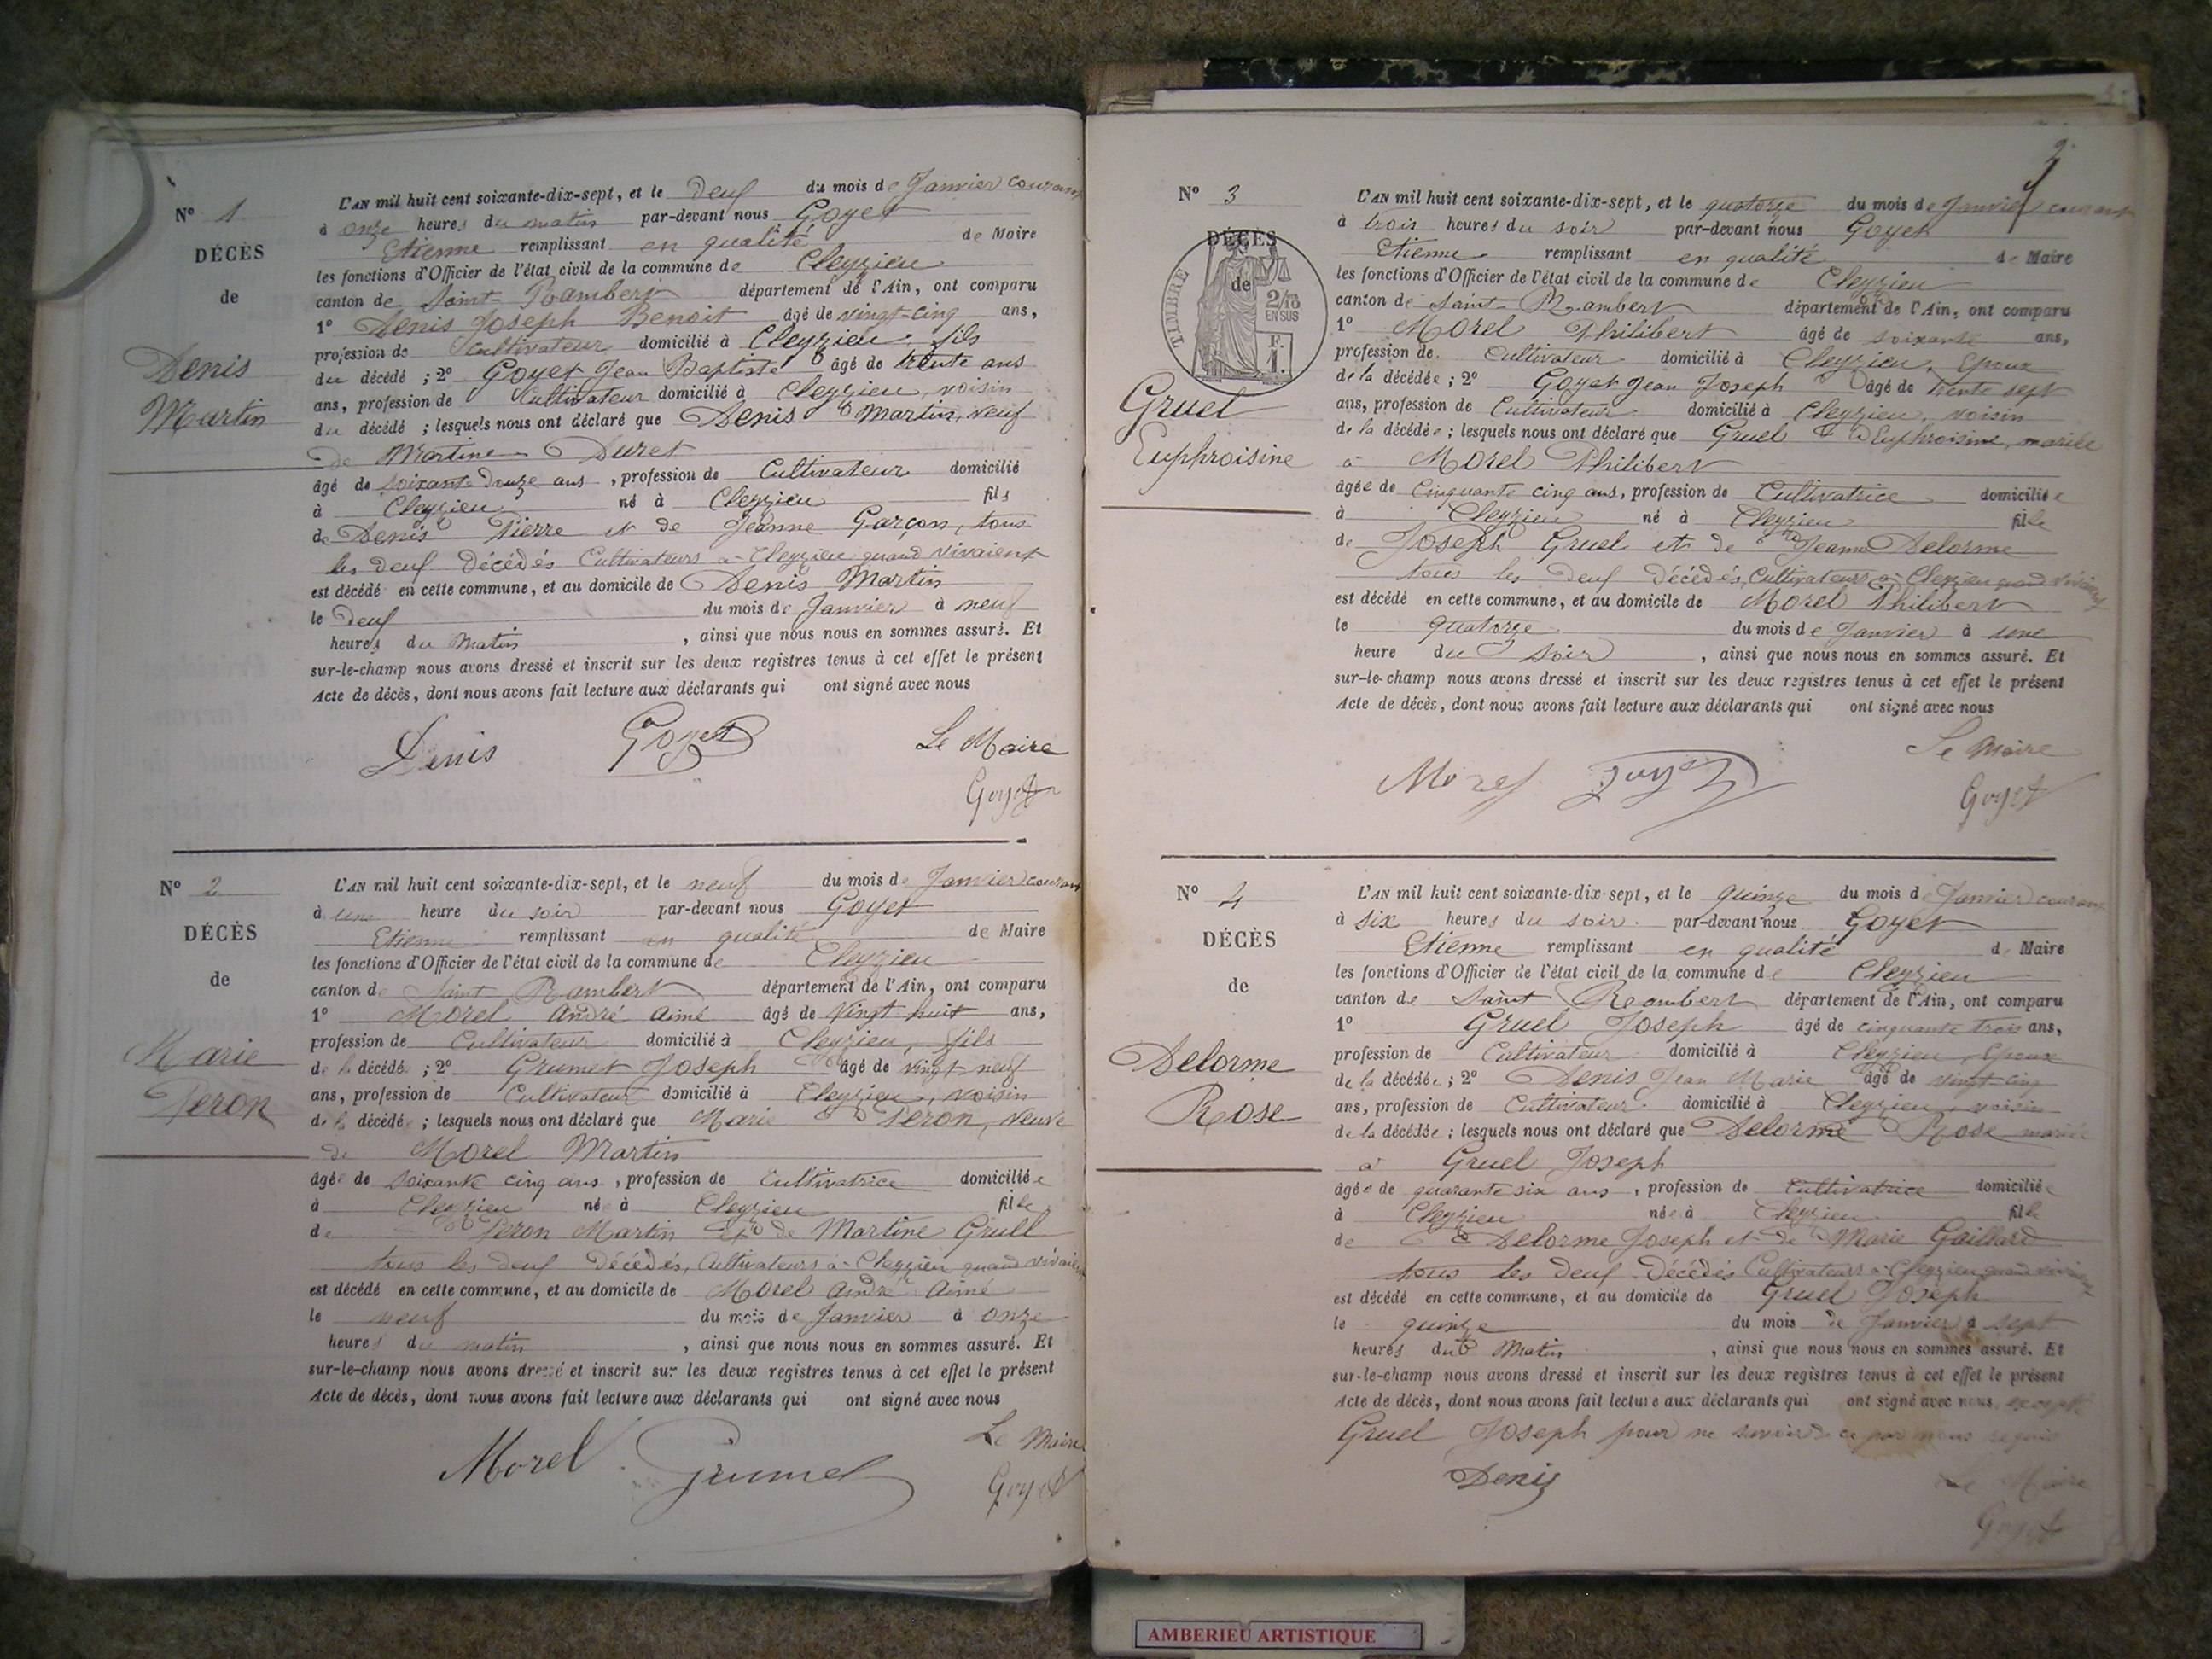 Nº 1
DÉCÈS
de
Denis
Martin
L'AN mil huit cent soixante-dix-sept, et le deux du mois de Janvier courant
à onze heures du matin par-devant nous Goyet
Etienne remplissant en qualité de Maire
les fonctions d'Officier de l'état civil de la commune de Cleyzieu
canton de Saint-Rambert département de l'Ain, ont comparu
1º Denis Joseph Benoit âgé de vingt-cinq ans,
profession de Cultivateur domicilié à Cleyzieu, fils
du décédé ; 2º Goyet Jean Baptiste âgé de trente ans
ans, profession de Cultivateur domicilié à Cleyzieu, voisin
du décédé ; lesquels nous ont déclaré que Denis Martin, veuf
de Martine Duret
âgé de soixante douze ans, profession de Cultivateur domicilié
à Cleyzieu né à Cleyzieu fils
de Denis Pierre et de Jeanne Garçon, tous
les deux décédés Cultivateurs à Cleyzieu quand vivaient
est décédé en cette commune, et au domicile de Denis Martin
le deux du mois de Janvier à neuf
heures du matin, ainsi que nous nous en sommes assuré. Et
sur-le-champ nous avons dressé et inscrit sur les deux registres tenus à cet effet le présent
Acte de décès, dont nous avons fait lecture aux déclarants qui ont signé avec nous
Denis Goyet Le Maire
Goyet
Nº 2
DÉCÈS
de
Marie
Peron
L'AN mil huit cent soixante-dix-sept, et le neuf du mois de Janvier courant
à une heure du soir par-devant nous Goyet
Etienne remplissant en qualité de Maire
les fonctions d'Officier de l'état civil de la commune de Cleyzieu
canton de Saint Rambert département de l'Ain, ont comparu
1º Morel André Aimé âgé de vingt huit ans,
profession de Cultivateur domicilié à Cleyzieu, fils
de la décédée ; 2º Grumet Joseph âgé de vingt neuf
ans, profession de Cultivateur domicilié à Cleyzieu, voisin
de la décédée ; lesquels nous ont déclaré que Marie Peron, veuve
de Morel Martin
âgée de soixante cinq ans, profession de Cultivatrice domiciliée
à Cleyzieu née à Cleyzieu fille
de Peron Martin et de Martine Gruel
tous les deux décédés, Cultivateurs à Cleyzieu quand vivaient
est décédé en cette commune, et au domicile de Morel André Aimé
le neuf du mois de Janvier à onze
heures du matin, ainsi que nous nous en sommes assuré. Et
sur-le-champ nous avons dressé et inscrit sur les deux registres tenus à cet effet le présent
Acte de décès, dont nous avons fait lecture aux déclarants qui ont signé avec nous
Morel Grumet Le Maire
Goyet
2
Nº 3
DÉCÈS
de
TIMBRE
2/10
EN SUS
F.
1.
Gruel
Euphroisine
L'AN mil huit cent soixante-dix-sept, et le quatorze du mois de Janvier courant
à trois heures du soir par-devant nous Goyet
Etienne remplissant en qualité de Maire
les fonctions d'Officier de l'état civil de la commune de Cleyzieu
canton de Saint-Rambert département de l'Ain, ont comparu
1º Morel Philibert âgé de soixante ans,
profession de Cultivateur domicilié à Cleyzieu, Epoux
de la décédée ; 2º Goyet Jean Joseph âgé de trente sept
ans, profession de Cultivateur domicilié à Cleyzieu, voisin
de la décédée ; lesquels nous ont déclaré que Gruel Euphroisine, mariée
à Morel Philibert
âgée de Cinquante cinq ans, profession de Cultivatrice domiciliée
à Cleyzieu né à Cleyzieu fille
de Joseph Gruel et de Jeanne Delorme
tous les deux décédés, Cultivateurs à Cleyzieu quand vivaient
est décédé en cette commune, et au domicile de Morel Philibert
le quatorze du mois de Janvier à une
heure du soir, ainsi que nous nous en sommes assuré. Et
sur-le-champ nous avons dressé et inscrit sur les deux registres tenus à cet effet le présent
Acte de décès, dont nous avons fait lecture aux déclarants qui ont signé avec nous
Morel Goyet Le Maire
Goyet
Nº 4
DÉCÈS
de
Delorme
Rose
L'AN mil huit cent soixante-dix-sept, et le quinze du mois de Janvier courant
à six heures du soir par-devant nous Goyet
Etienne remplissant en qualité de Maire
les fonctions d'Officier de l'état civil de la commune de Cleyzieu
canton de Saint Rambert département de l'Ain, ont comparu
1º Gruel Joseph âgé de cinquante trois ans,
profession de Cultivateur domicilié à Cleyzieu, Epoux
de la décédée ; 2º Denis Jean Marie âgé de vingt cinq
ans, profession de Cultivateur domicilié à Cleyzieu, voisin
de la décédée ; lesquels nous ont déclaré que Delorme Rose mariée
à Gruel Joseph
âgée de quarante six ans, profession de Cultivatrice domiciliée
à Cleyzieu née à Cleyzieu fille
de Delorme Joseph et de Marie Gaillard
tous les deux décédés Cultivateurs à Cleyzieu quand vivaient
est décédé en cette commune, et au domicile de Gruel Joseph
le quinze du mois de Janvier à sept
heures du Matin, ainsi que nous nous en sommes assuré. Et
sur-le-champ nous avons dressé et inscrit sur les deux registres tenus à cet effet le présent
Acte de décès, dont nous avons fait lecture aux déclarants qui ont signé avec nous, excepté
Gruel Joseph pour ne savoir de ce par nous requis
Denis Le Maire
Goyet
AMBERIEU ARTISTIQUE